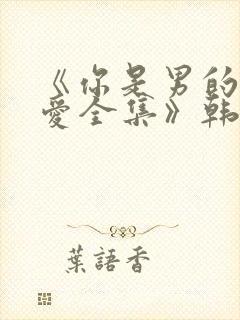 《你是男的
愛全集》韩
葉語香